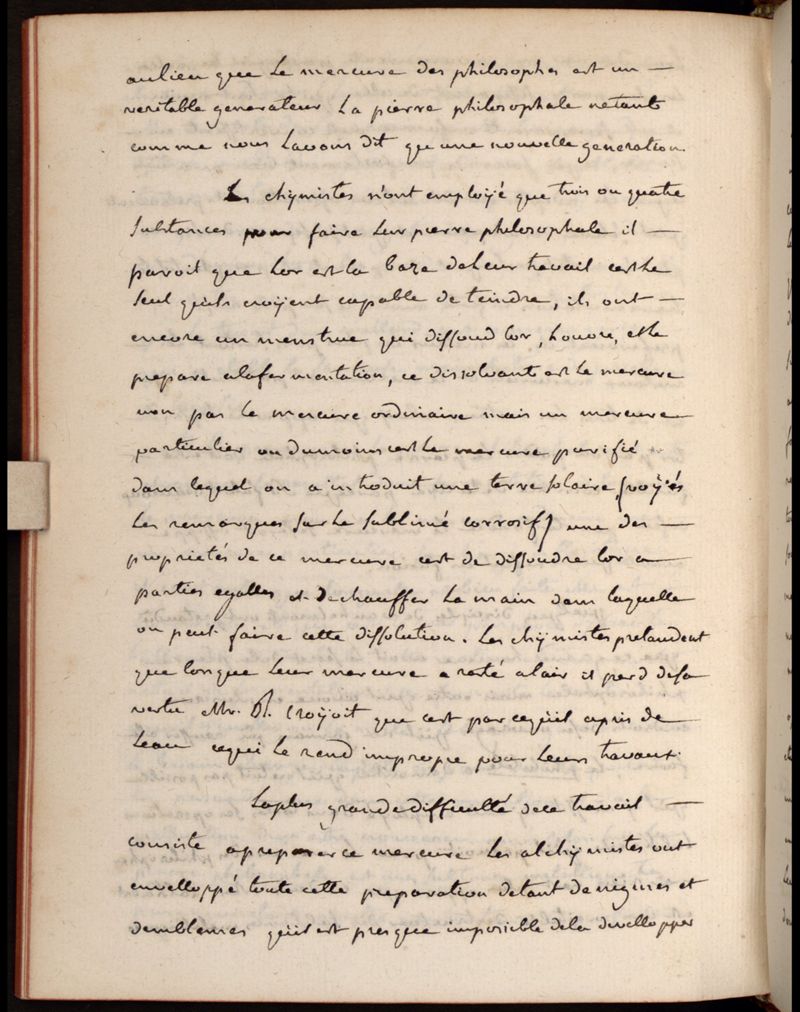 aulieu que Le mercure des philosophes est un —
veritable generateur La pierre philosophale netant
comme nous Lavons Dit qu une nouvelle generation.
Les chymistes n'ont employé que trois ou quatre
substances pour faire Leur pierre philosophale il —
paroit que Lor est la baze deleur travail cest Le
seul quils croyent capable de teindre, ils ont —
encore un menstrue qui dissoud lor, Louvre, et le
prepare alafermentation, ce dissolvant est Le mercure
non pas Le mercure ordinaire mais un mercure
particulier ou dumoins cest Le mercure purifié
dans lequel on a introduit une terre solaire (voyés
Les remarques sur Le sublimé corrosif) une des —
proprietés de ce mercure est de dissoudre lor a
parties egalles et dechauffer La main dans laquelle
on peut faire cette dissolution. Les chymistes pretendent
que lorsque Leur mercure a resté alair il perd desa
vertu Mr. R. croyoit que cest parcequil a pris de
Leau cequi Le rend impropre pour Leurs travaux.
La plus grande difficulté dece travail —
consiste apreparer ce mercure Les alchymistes ont
envelloppé toute cette preparation detant denigmes et
demblemes quil est presque imposible dela devellopper